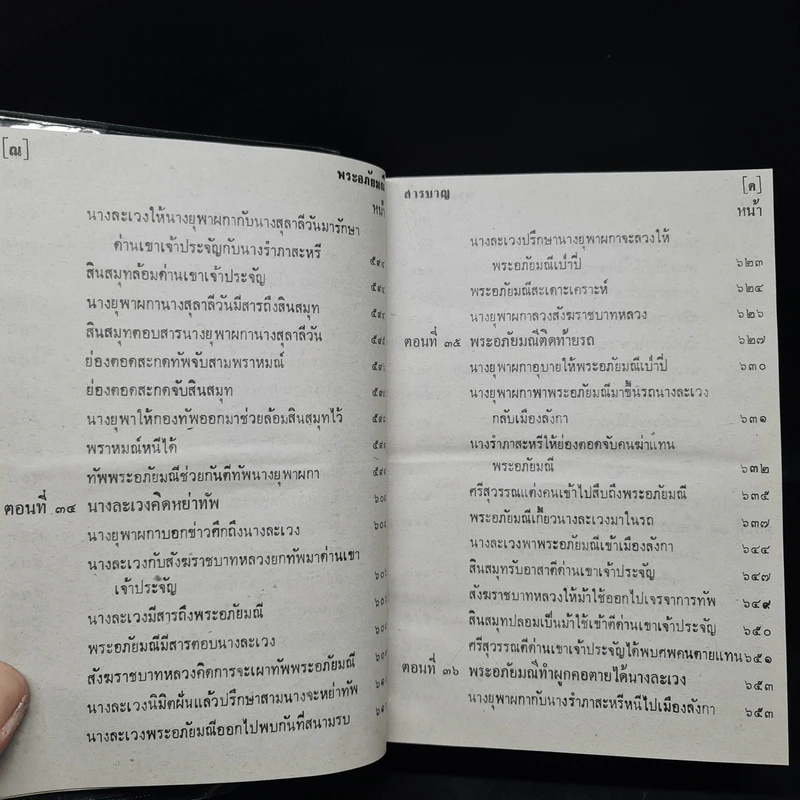 [ณ]
พระอภัยมณี
หน้า
นางละเวงให้นางยุพาผกากับนางสุลาลีวันมารักษา
ด่านเขาเจ้าประจัญกับนางรำภาสะหรี
สินสมุทล้อมด่านเขาเจ้าประจัญ
นางยุพาผกานางสุลาลีวันมีสารถึงสินสมุท
สินสมุทตอบสารนางยุพาผกานางสุลาลีวัน
ย่องตอดสะกดทัพจับสามพราหมณ์
ย่องตอดสะกดจับสินสมุท
นางยุพาให้กองทัพออกมาช่วยล้อมสินสมุทไว้
พราหมณ์หนีได้
ทัพพระอภัยมณีช่วยกันตีทัพนางยุพาผกา
ตอนที่ ๓๔ นางละเวงคิดหย่าทัพ
นางยุพาผกาบอกข่าวศึกถึงนางละเวง
นางละเวงกับสังฆราชบาทหลวงยกทัพมาด่านเขา
เจ้าประจัญ
นางละเวงมีสารถึงพระอภัยมณี
พระอภัยมณีมีสารตอบนางละเวง
สังฆราชบาทหลวงคิดการจะเผาทัพพระอภัยมณี
นางละเวงนิมิตฝันแล้วปรึกษาสามนางจะหย่าทัพ
นางละเวงพระอภัยมณีออกไปพบกันที่สนามรบ
สารบาญ
[ด]
หน้า
นางละเวงปรึกษานางยุพาผกาจะลวงให้
พระอภัยมณีเป่าปี่ ๖๒๓
พระอภัยมณีสะเดาะเคราะห์ ๖๒๔
นางยุพาผกาลวงสังฆราชบาทหลวง ๖๒๖
ตอนที่ ๓๕ พระอภัยมณีติดท้ายรถ ๖๒๗
นางยุพาผกาอุบายให้พระอภัยมณีเป่าปี่ ๖๓๐
นางยุพาผกาพาพระอภัยมณีมาขึ้นรถนางละเวง
กลับเมืองลังกา ๖๓๑
นางรำภาสะหรีให้ย่องตอดจับคนฆ่าแทน
พระอภัยมณี ๖๓๒
ศรีสุวรรณแต่งคนเข้าไปสืบถึงพระอภัยมณี ๖๓๕
พระอภัยมณีเกี้ยวนางละเวงมาในรถ ๖๓๗
นางละเวงพาพระอภัยมณีเข้าเมืองลังกา ๖๔๔
สินสมุทรับอาสาตีด่านเขาเจ้าประจัญ ๖๔๗
สังฆราชบาทหลวงให้ม้าใช้ออกไปเจรจาการทัพ ๖๔๙
สินสมุทปลอมเป็นม้าใช้เข้าตีด่านเขาเจ้าประจัญ ๖๕๐
ศรีสุวรรณตีด่านเขาเจ้าประจัญได้พบศพคนตายแทน ๖๕๑
ตอนที่ ๓๖ พระอภัยมณีทำผูกคอตายได้นางละเวง ๖๕๓
นางยุพาผกากับนางรำภาสะหรีหนีไปเมืองลังกา ๖๕๓